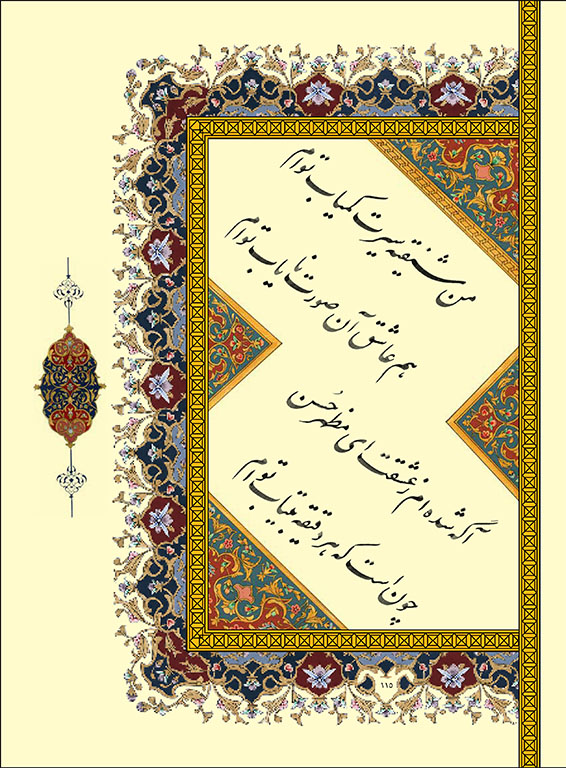 من شیفته سیرت کمیاب توام
هم عاشق آن صورت نایاب توام
آگه شده‌ام ز عشقت ای مظهر حُسن
چون است که هر دقیقه بیتاب توام
١١٥